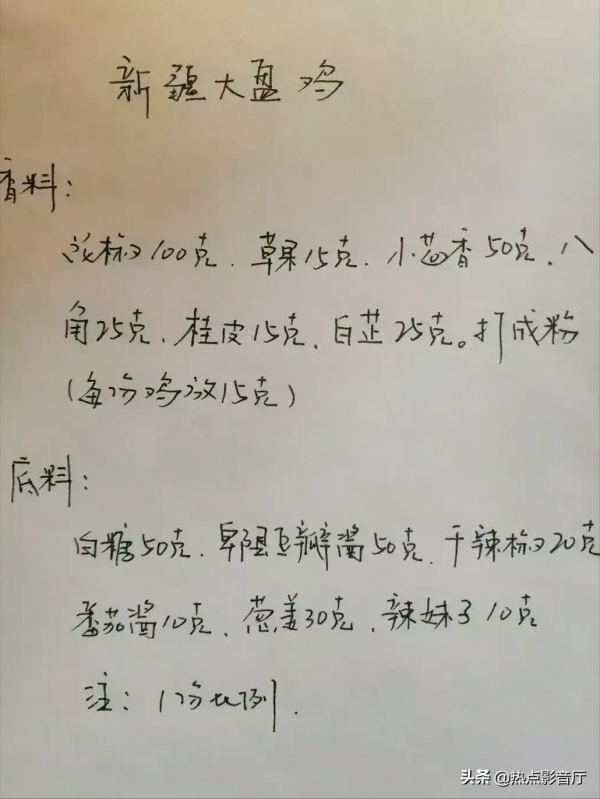 新疆大盘鸡
香料：
花椒100克、草果15克、小茴香50克、八
角25克、桂皮15克、白芷25克。打成粉
(每份鸡放15克)
底料：
白糖50克、郫县豆瓣酱50克、干辣椒20克
番茄酱10克、葱姜30克、辣妹子10克
注：1份比例.
头条 @热点影音厅